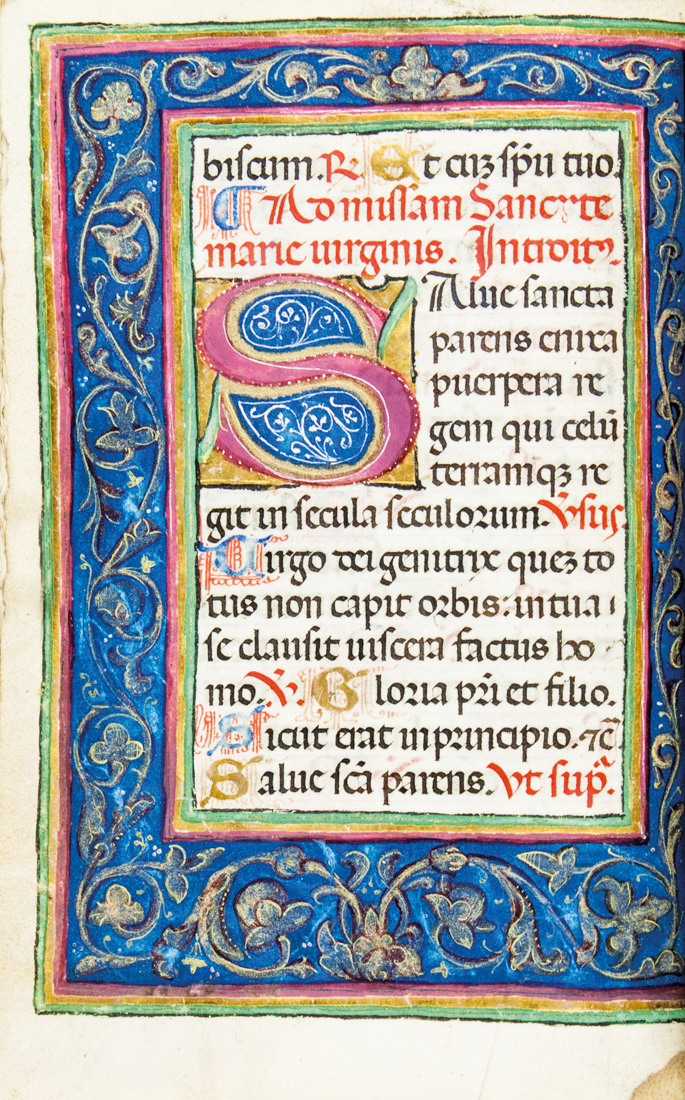 biscum. R. Et cuȝ sp̄u tuo.
Ad missam Sancte
marie uirginis. Introitꝰ.
SAlue sancta
parens enixa
puerpera re
gem qui celū
terramqȝ re
git in secula seculorum. V̄sus.
Uirgo dei genitrix queȝ to
tus non capit orbis: in tua i
se clausit uiscera factus ho
mo. V̄. Gloria p̄ri et filio.
Sicut erat in principio. ⁊c̄
Salue sc̄a parens. Vt sup̄.